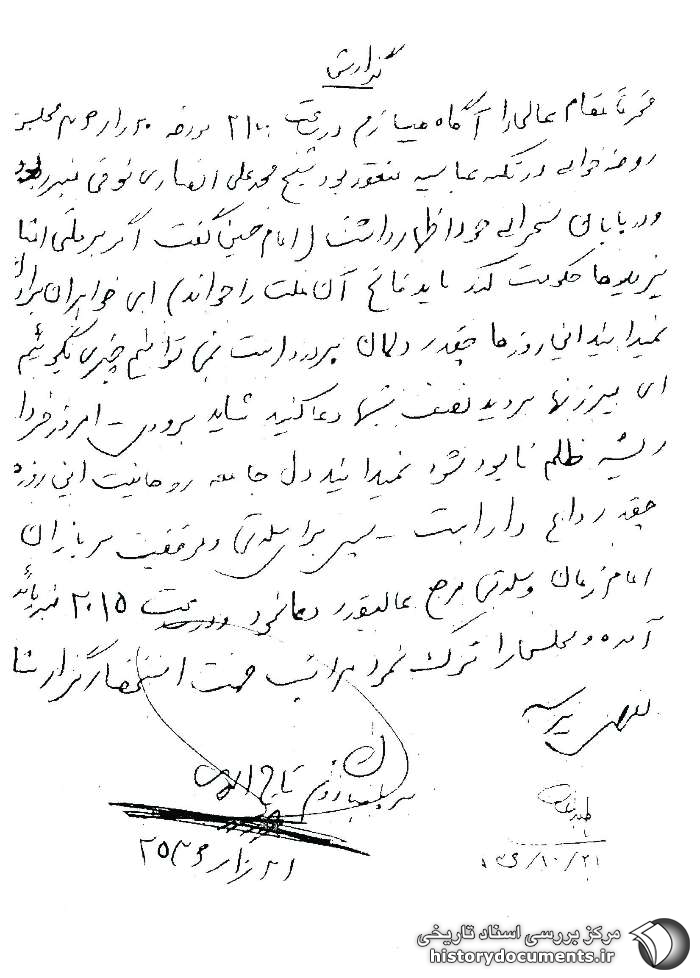 گزارش
محترماً مقام عالی را آگاه میسازم در ساعت ۲۱۰۰ مورخه مجلس
روضه خوانی در تکیه عباسیه منعقد بود شیخ محمد علی انصاری فوق منبر رفت
و در پایان سخنرانی خود اظهار داشت (امام حسین گفت اگر بر ملتی امثال
یزیدها حکومت کند باید فاتح آن ملت را خواند) ای خواهران برادران
نمیدانید این روزها چقدر دلمان پردرد است نمی توانیم چیزی بگوئیم
ای پیرزنها بروید نصف شبها دعا کنید شاید بزودی امروز فردا
ریشه ظلم نابود شود نمیدانید دل جامعه روحانیت این روزها
چقدر داغ دار است سپس برای سلامتی و موفقیت سربازان
امام زمان و سلامتی مرجع عالیقدر دعا نمود و در ساعت ۲۰۱۵ منبر پائین
آمده و مجلس را ترک نمود مراتب جهت استحضار گزارش
تاج
۲۱
۳۶/۱۰/۲۱
مرکز بررسی اسناد تاریخی
historydocuments.ir